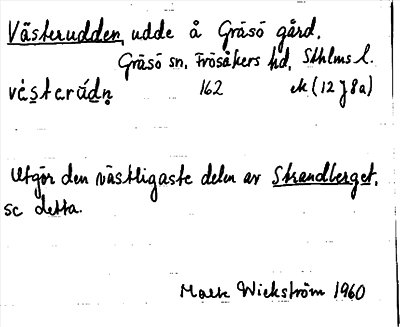 Västerudden, udde å Gräsö gård,
Gräsö sn, Frösåkers hd, Sthlms l.
västərúdn̥ 162 ek (12 J 8a)
Utgör den västligaste delen av Strandberget,
se detta.
Wickström 1960